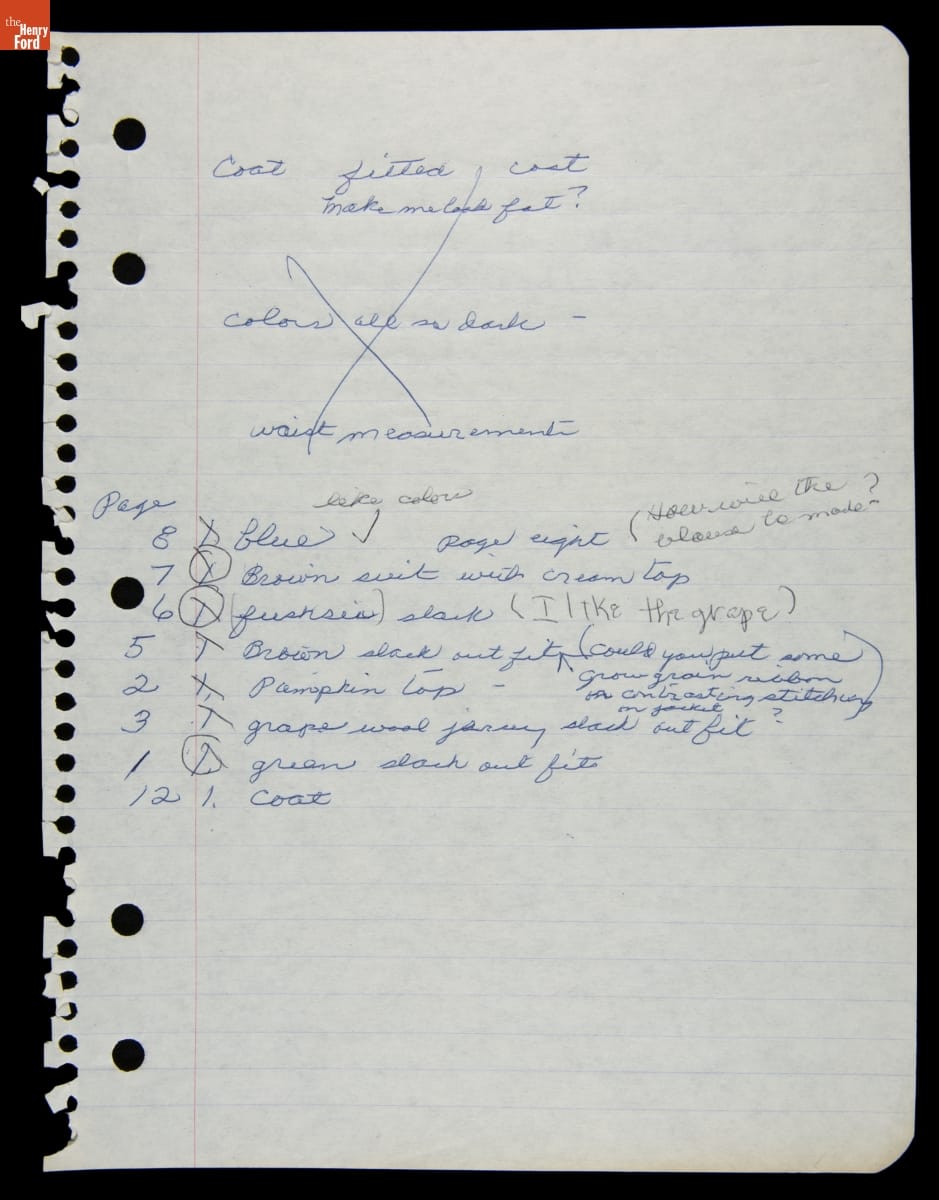 the
Henry
Ford
Coat fitted coat
make me look fat?
colors all so dark -
waist measurements
Page
like color
8 1. blue ✓ page eight (How will the blouse be made?
7 1. Brown suit with cream top
6 1. (fushsia) slack (I like the grape)
5 1 Brown slack out fit (Could you put some
Grow grain ribbon
or contrasting stitching
on jacket ?)
2 1. Pampkin top -
3 1 grape wool jersey slack out fit
1 1. green slack out fits
12 1. Coat